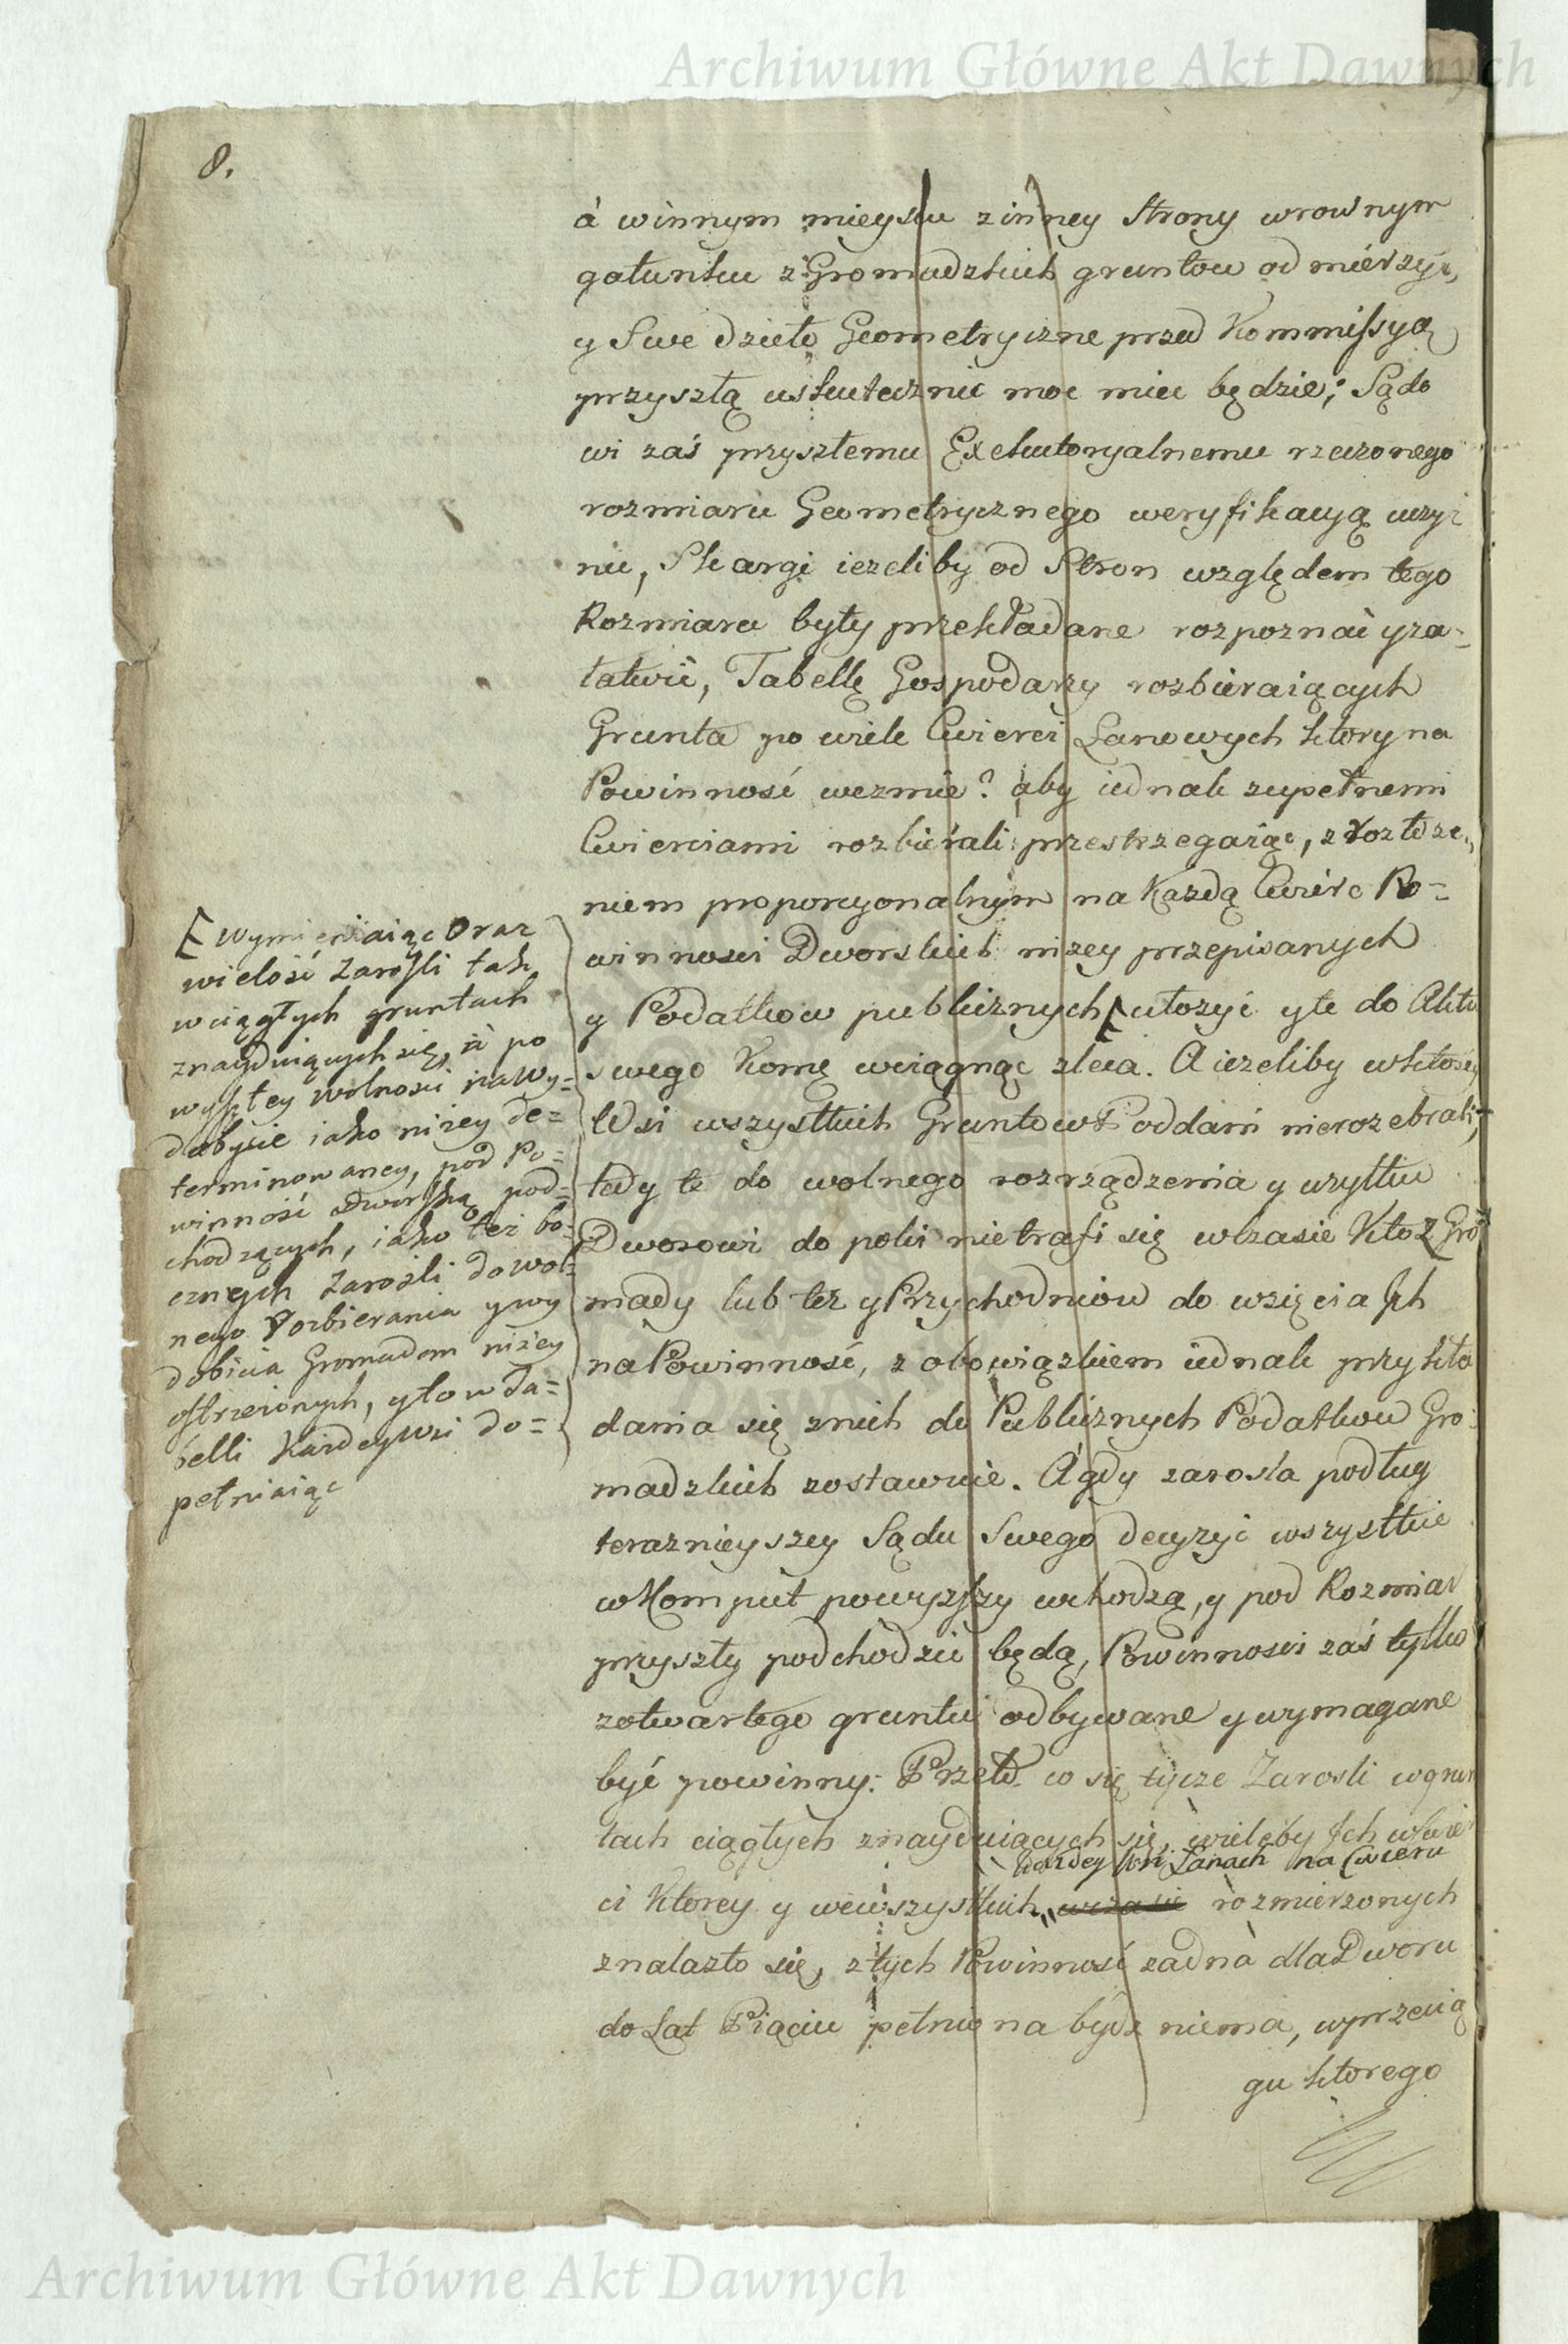 Archiwum Główne Akt Dawnych
8.
á winnym mieyscu zinney Strony wrownym
gatunku z Gromadzkich gruntow odmierzyć,
y Swe dzieło Geometryczne przed Kommissyą
przyszłą uskutecznić moc mieć będzie; Sądo
wi zaś przyszłemu Exekutoryalnemu rzeczonego
rozmiaru Geometrycznego weryfikacyą uczyi
nić, Skargi ieżeliby od Stron względem tego
Rozmiaru były przekładane rozpoznać yza-
łatwić, Tabellę Gospodarzy rozbieraiących
Grunta po wiele Cwierci Łanowych ktory na
Powinność wezmie? aby iednak zupełnemi
Cwierciami rozbierali przestrzegaiąc, z rozłoże„
niem proporcyonalnym na Każdą Cwierć Po=
winnosci Dworskich niżey przepisanych
y Podatkow publicznych [ ułożyć yte do Aktu
swego Komę wciągnąć zleca. A ieżeliby wktorey
Wsi wszystkich Gruntow Poddani nierozebrali,
tedy te do wolnego rozrządzenia y użytku
Dworowi do poki nietrafi się wczasie Kto z Gro
mady lub też y Przychodniow do wzięcia Jch
na Powinność, z obowiązkiem iednak przykła
dania się znich do Publicznych Podatkow Gro
madzkich zostawuie. A gdy zarosla podług
teraznieyszey Sądu Swego decyzyi wszystkie
w Komput powyższy wchodzą, y pod Rozmiar
przyszły podchodzić będą, Powinnosci zaś tylko
zotwartego gruntu odbywane y wymagane
być powinny: Przeto co się tycze Zarosli wgrun
tach ciągłych znayduiących się, wieleby Jch wCwier
każdey Wsi Łanach na Cwierci
ci Ktorey y wewszystkich „ wczasie rozmierzonych
znalazło się, ztych Powinność żadna dla Dworu
do Lat Piąciu pełniona bydź niema, wprzecią
gu ktorego
[ Wymieniaiąc Oraz
wielość Zarosli tak
wciągłych gruntach
znayduiących się, á po
wyszłey wolnosci na Wy=
dobycie iako niżey de=
terminowaney, pod Po=
winność Dworską pod=
chodzących, iako też bo=
cznych Zarosli do wol=
nego rozbierania y wy
dobicia Gromadom niżey
ostrzeżonych, y to w Ta=
belli Każdey Wsi do=
pełniaiąc
Archiwum Główne Akt Dawnych